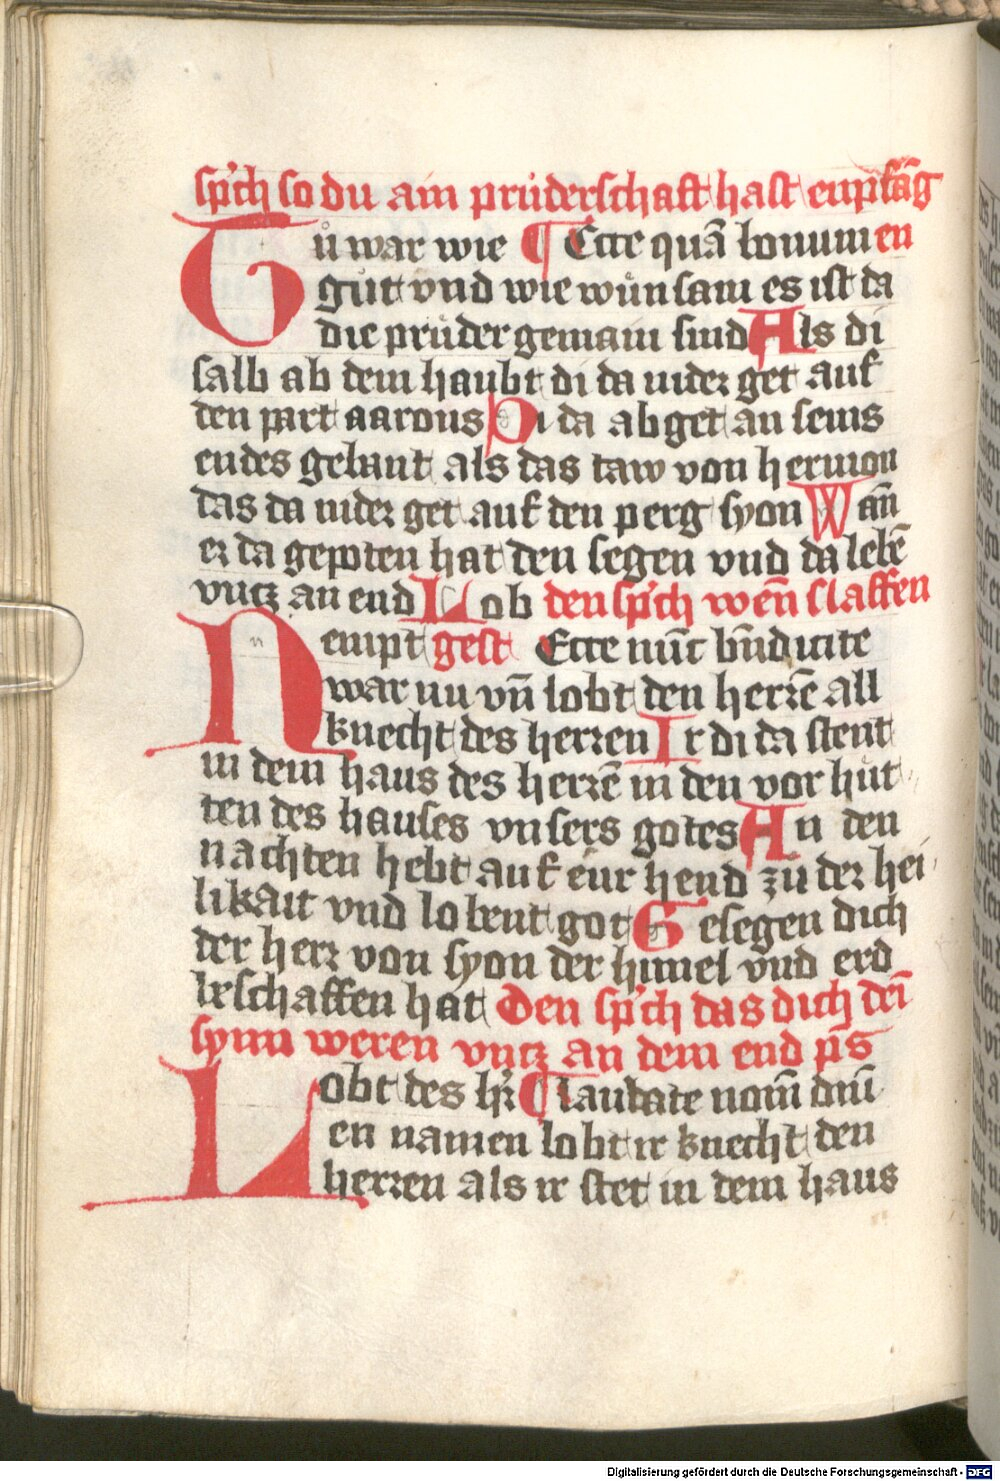 sp̄ch so du ain prüderschaft hast enpfāg
Tů war wie ¶ Ecce quā bonum en
gůt vnd wie wůnsam es ist da
die průder gemain sind Als di
salb ab dem haubt di da nider get auf
den part aarons Di da abget an seins
endes gebant als das taw von hermon
das da nider get auf den perg syon Wān
er da gepoten hat den segen vnd da lebē
vntz an end Lob den sp̄ch wēn slaffen
Nempt gest Ecce nūc bn̄dicite
war nu vn̄ lobt den herrē all
knecht des herren Ir di da stent
in dem haus des herrē in den vor hůt
ten des hauses vnsers gotes An den
nachten hebt auf eur hend zů der hei
likait vnd lobent got Gesegen dich
der herr von syon der himel vnd erd
beschaffen hat Den sp̄ch das dich dei
synn weren vntz an dem end ps̄
Lobt des hr̄ ¶ Laudate nom̄ dnī
en namen lobt ir knecht den
herren als ir stet in dem haus
Digitalisierung gefördert durch die Deutsche Forschungsgemeinschaft - DFG